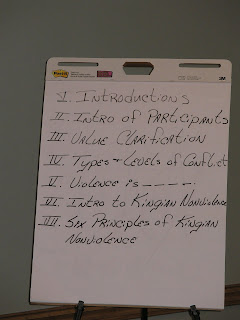 Post-it
3M
I. Introductions
II. Intro of Participants
III. Value Clarification
IV. Types + Levels of Conflict
V. Violence is _ _ _ _ .
VI. Intro to Kingian Nonviolence
VII. Six Principles of Kingian
Nonviolence